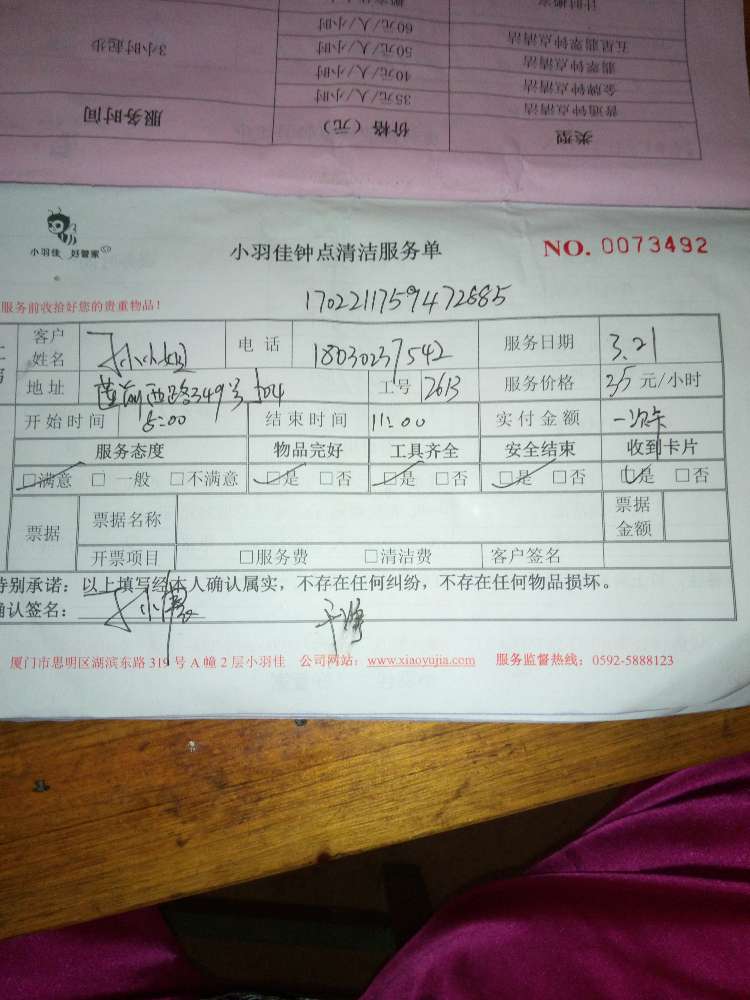 类型 价格（元） 服务时间
普通钟点清洁 35元/人/小时 3小时起步
金牌钟点清洁 40元/人/小时
翡翠钟点清洁 50元/人/小时
五星翡翠钟点清洁 60元/人/小时
小羽佳 好管家
小羽佳钟点清洁服务单
NO. 0073492
服务前收拾好您的贵重物品！
1702211759472885
客户姓名 孙小姐 电话 18030237542 服务日期 3.21
地址 莲前西路349号 工号 2613 服务价格 35 元/小时
开始时间 8:00 结束时间 11:00 实付金额 一次卡
服务态度 物品完好 工具齐全 安全结束 收到卡片
□满意 □ 一般 □不满意 □是 □否 □是 □否 □是 □否 □是 □否
票据 票据名称 票据金额
开票项目 □服务费 □清洁费 客户签名
特别承诺：以上填写经本人确认属实，不存在任何纠纷，不存在任何物品损坏。
确认签名： 干净
厦门市思明区湖滨东路 319 号 A 幢 2 层小羽佳 公司网站：www.xiaoyujia.com 服务监督热线：0592-5888123